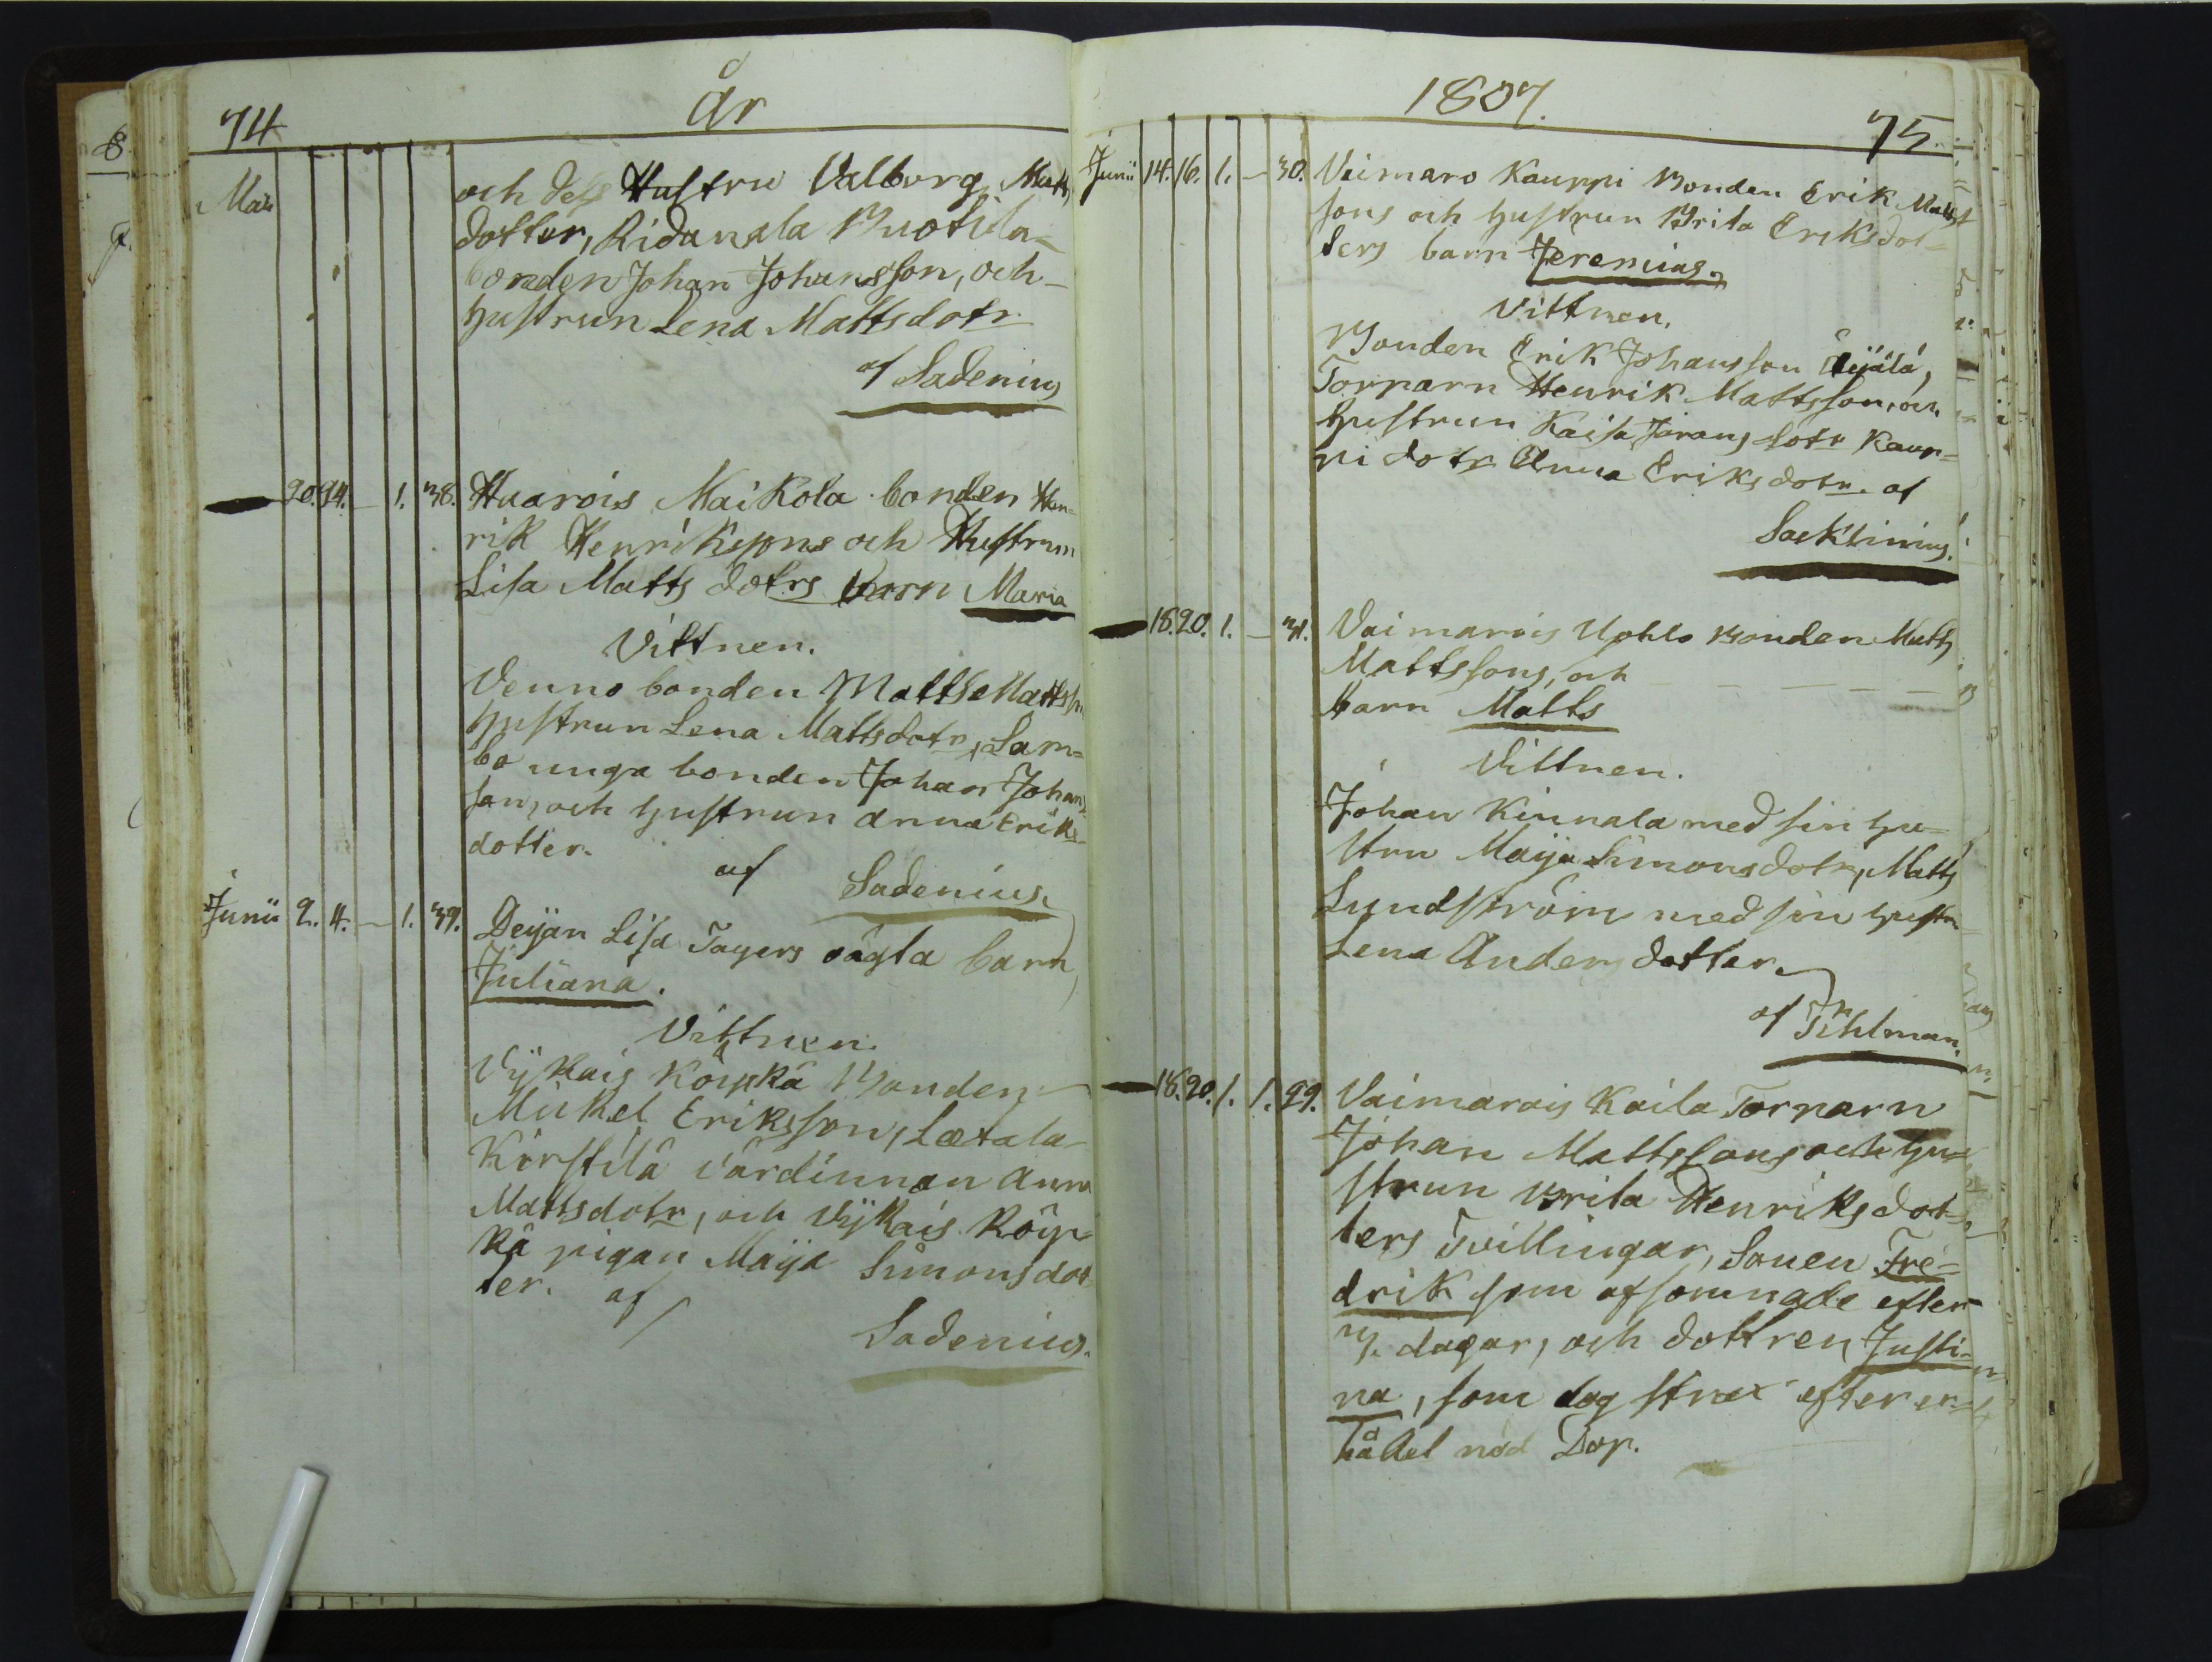 74
År
Maii
och dess Hustru Valborg Matts
dotter, Ridanala Buotila=
bonden Johan Johansson, och
hustrun Lena Mattsdotr
af Sadenius
20. 24. — 1. 38. Huarois Maikola bonden Hen=
rik Henrikssons och Hustrun
Lisa Matts dotrs barn Maria
Vittnen.
Venno bonden Matts Mattsson
hustrun Lena Mattsdotr, Lam=
bo unga bonden Johan Johans
son, och hustrun Anna Eriks
dotter.
af Sadenius.
Junii 2. 4. — 1. 39. Deijan Lisa Tayers oägta barn
Juliana.
Vittnen.
Vijkais Köijkä Bonden
Mickel Eriksson, Lætala
Kirstilä värdinnan Anna
Mattsdotr, och Vijkais Köij=
kä pigan Maija Simonsdot
ter. af
Sadenius.
1807.
75.
Junii 14. 16. 1. — 30. Veimaro Kauppi Bonden Erik Matts
sons och hustrun Brita Eriksdot=
ters barn Jeremias.
Vittnen.
Bonden Erik Johansson Äijälä,
Torparn Henrik Mattsson, och
hustrun Kaisa Jörans dotr Kaup=
pi dotr Anna Eriksdotr. af
Sacklinius.
18. 20. 1. — 31. Vaimarois Uphlo Bonden Matts
Mattssons, och — — — — —
barn Matts
Vittnen.
Johan Kinnala med sin hu=
stru Maija Simonsdotr, Matts
Lundström med sin hustru
Lena Anders dotter.
af Tihlman.
18. 20. 1. 1. 29. Vaimarois Kaila Torparn
Johan Mattssons och hu=
strun Brita Henriksdot=
ters Tvillingar, Sonen Fre=
drik som afsomnade efter
dagar, och dottren Justi=
na, som dog strax efter er=
hållet nöd Dop.